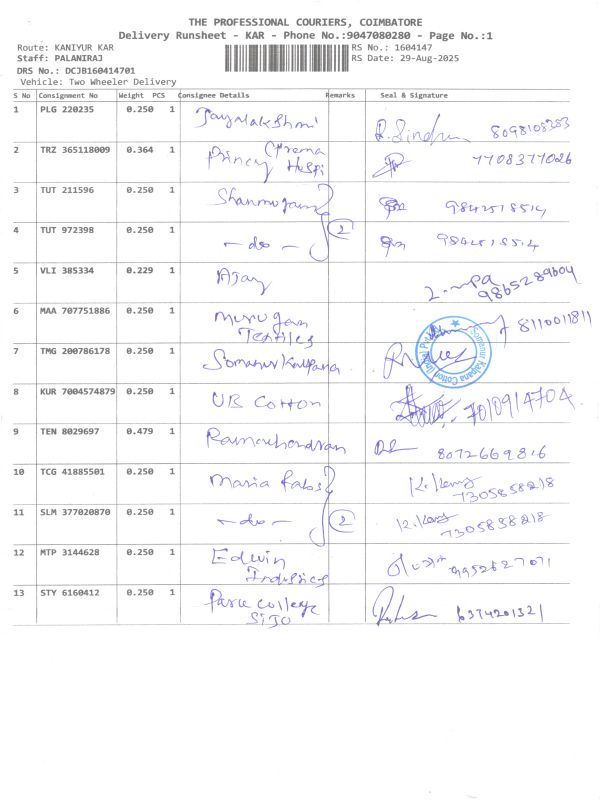 THE PROFESSIONAL COURIERS, COIMBATORE
Delivery Runsheet - KAR - Phone No.:9047080280 - Page No.:1
Route: KANIYUR KAR RS No.: 1604147
Staff: PALANIRAJ RS Date: 29-Aug-2025
DRS No.: DCJB160414701
Vehicle: Two Wheeler Delivery
S No Consignment No Weight PCS Consignee Details Remarks Seal & Signature
1 PLG 220235 0.250 1 Jayalakshmi R. Sindhu
2 TRZ 365118009 0.364 1 (Prema 7708377026
Princy Hospi
3 TUT 211596 0.250 1 Shanmugam 9842518514
4 TUT 972398 0.250 1 - do - 2 9842518514
5 VLI 385334 0.229 1 Ajay 9865289604
6 MAA 707751886 0.250 1 Murugan 8110011811
Textiles
7 TMG 200786178 0.250 1 Somanur Kalpana
8 KUR 7004574879 0.250 1 UB Cotton
9 TEN 8029697 0.479 1 Ramachandran 8072669816
10 TCG 41885501 0.250 1 Maria 7305858218
11 SLM 377020870 0.250 1 - do - 2 7305858218
12 MTP 3144628 0.250 1 Edwin 9952627071
13 STY 6160412 0.250 1 College 6374201321